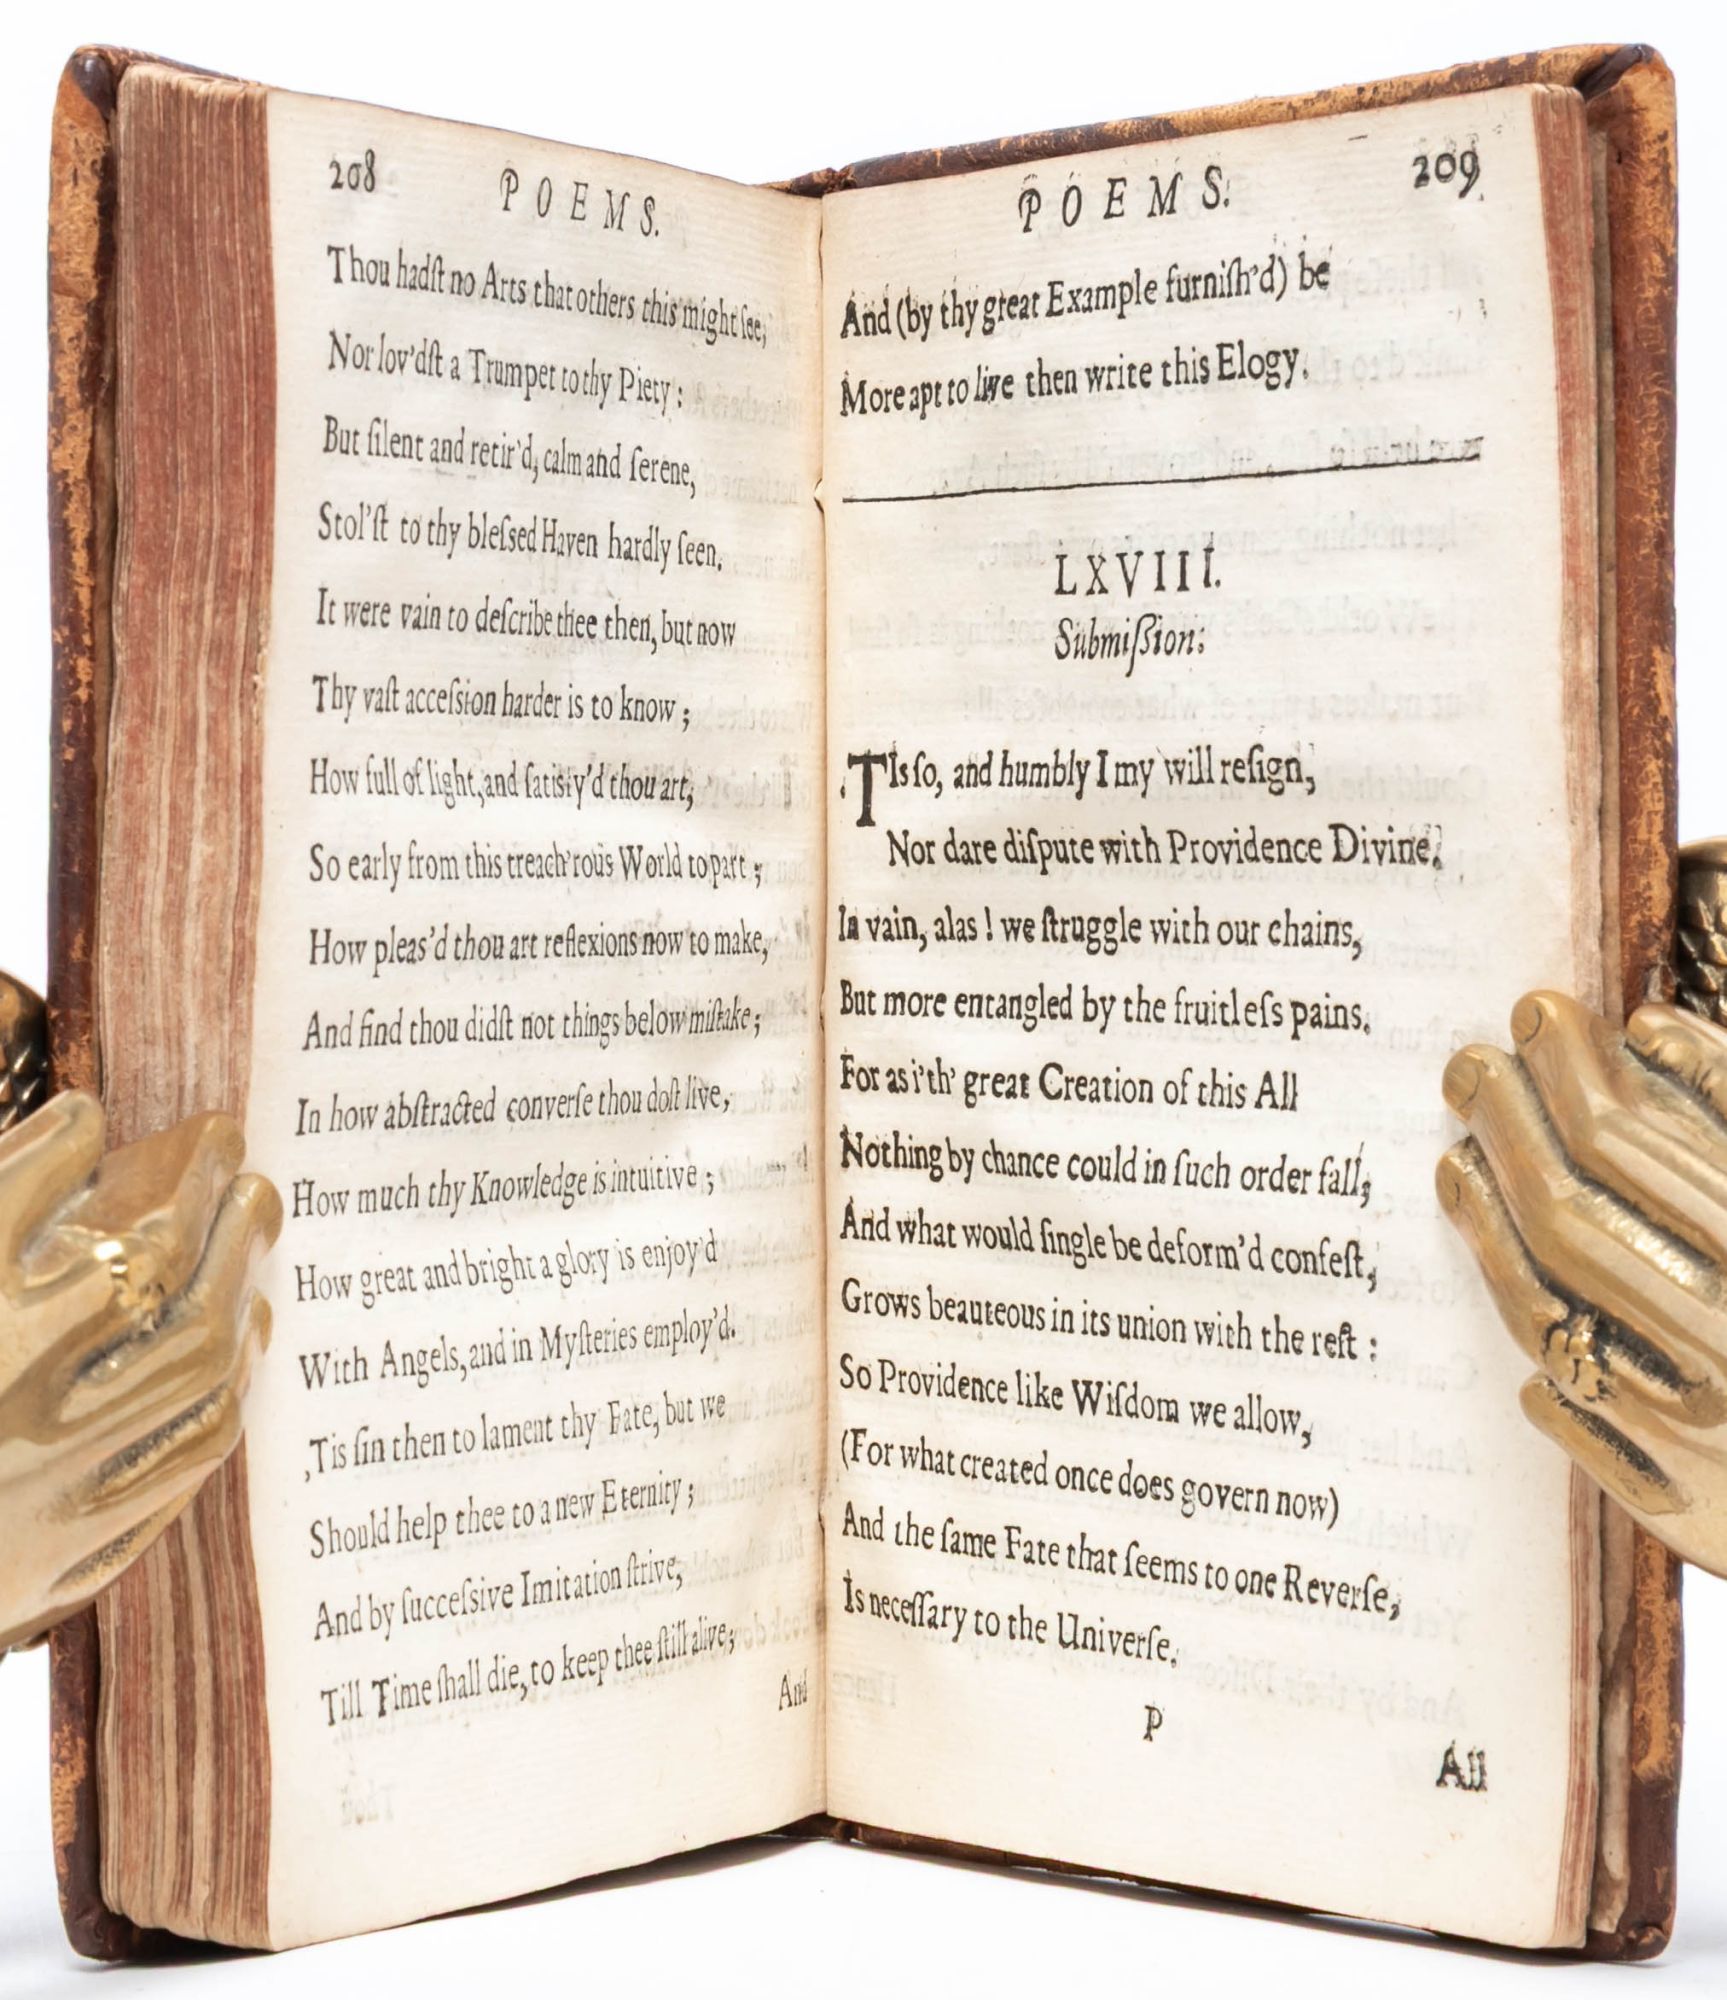 208
POEMS.
Thou hadſt no Arts that others this might ſee,
Nor lov'dſt a Trumpet to thy Piety:
But ſilent and retir'd, calm and ſerene,
Stol'ſt to thy bleſsed Haven hardly ſeen.
It were vain to deſcribe thee then, but now
Thy vaſt acceſsion harder is to know;
How full of light, and ſatisſy'd thou art,
So early from this treach'rous World to part;
How pleas'd thou art reflexions now to make,
And find thou didſt not things below miſtake;
In how abſtracted converſe thou doſt live,
How much thy Knowledge is intuitive;
How great and bright a glory is enjoy'd
With Angels, and in Myſteries employ'd.
,Tis ſin then to lament thy Fate, but we
Should help thee to a new Eternity;
And by ſucceſsive Imitation ſtrive,
Till Time ſhall die, to keep thee ſtill alive;
And
POEMS.
209
And (by thy great Example furniſh'd) be
More apt to live then write this Elogy.
LXVIII.
Submiſſion:
'TIs ſo, and humbly I my will reſign,
Nor dare diſpute with Providence Divine.
In vain, alas! we ſtruggle with our chains,
But more entangled by the fruitleſs pains.
For as i'th' great Creation of this All
Nothing by chance could in ſuch order fall;
And what would ſingle be deform'd confeſt,
Grows beauteous in its union with the reſt:
So Providence like Wiſdom we allow,
(For what created once does govern now)
And the ſame Fate that ſeems to one Reverſe,
Is neceſſary to the Univerſe.
P
All